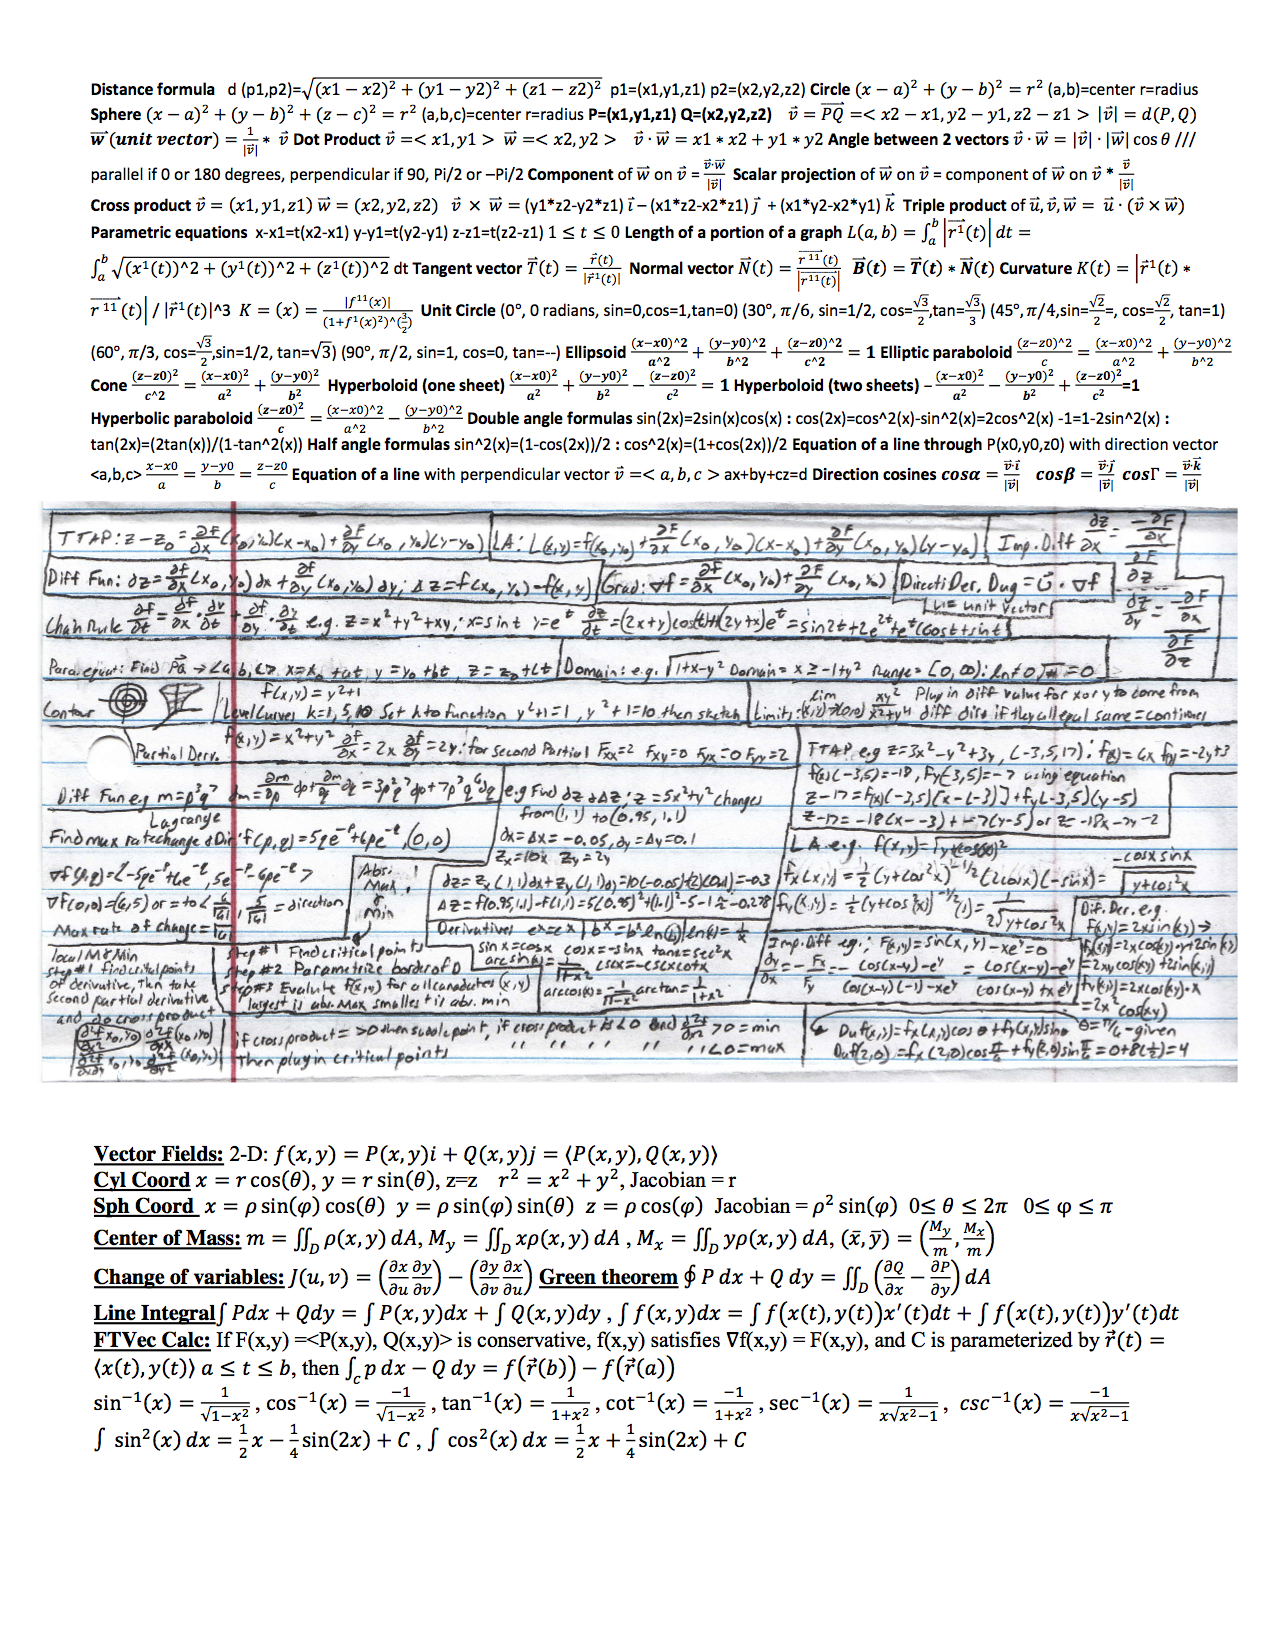 Distance formula d (p1,p2)=√(x1 − x2)² + (y1 − y2)² + (z1 − z2)² p1=(x1,y1,z1) p2=(x2,y2,z2) Circle (x − a)² + (y − b)² = r² (a,b)=center r=radius
Sphere (x − a)² + (y − b)² + (z − c)² = r² (a,b,c)=center r=radius P=(x1,y1,z1) Q=(x2,y2,z2) v⃗ = PQ⃗ =< x2 − x1, y2 − y1, z2 − z1 > |v⃗| = d(P, Q)
w⃗ (unit vector) = 1/|v⃗| ∗ v⃗ Dot Product v⃗ =< x1, y1 > w⃗ =< x2, y2 > v⃗ · w⃗ = x1 ∗ x2 + y1 ∗ y2 Angle between 2 vectors v⃗ · w⃗ = |v⃗| · |w⃗| cos θ ///
parallel if 0 or 180 degrees, perpendicular if 90, Pi/2 or –Pi/2 Component of w⃗ on v⃗ = v⃗·w⃗/|v⃗| Scalar projection of w⃗ on v⃗ = component of w⃗ on v⃗ * v⃗/|v⃗|
Cross product v⃗ = (x1, y1, z1) w⃗ = (x2, y2, z2) v⃗ × w⃗ = (y1*z2-y2*z1) i⃗ – (x1*z2-x2*z1) j⃗ + (x1*y2-x2*y1) k⃗ Triple product of u⃗, v⃗, w⃗ = u⃗ · (v⃗ × w⃗)
Parametric equations x-x1=t(x2-x1) y-y1=t(y2-y1) z-z1=t(z2-z1) 1 ≤ t ≤ 0 Length of a portion of a graph L(a, b) = ∫ₐᵇ |r¹⃗(t)| dt =
∫ₐᵇ √(x¹(t))^2 + (y¹(t))^2 + (z¹(t))^2 dt Tangent vector T⃗(t) = r⃗(t)/|r⃗¹(t)| Normal vector N⃗(t) = r¹¹⃗(t)/|r¹¹⃗(t)| B⃗(t) = T⃗(t) ∗ N⃗(t) Curvature K(t) = |r⃗¹(t) ∗
r¹¹⃗(t)| / |r⃗¹(t)|^3 K = (x) = |f¹¹(x)|/(1+f¹(x)²)^(3/2) Unit Circle (0°, 0 radians, sin=0,cos=1,tan=0) (30°, π/6, sin=1/2, cos=√3/2,tan=√3/3) (45°, π/4,sin=√2/2=, cos=√2/2, tan=1)
(60°, π/3, cos=√3/2,sin=1/2, tan=√3) (90°, π/2, sin=1, cos=0, tan=--) Ellipsoid (x−x0)^2/a^2 + (y−y0)^2/b^2 + (z−z0)^2/c^2 = 1 Elliptic paraboloid (z−z0)^2/c = (x−x0)^2/a^2 + (y−y0)^2/b^2
Cone (z−z0)²/c^2 = (x−x0)²/a² + (y−y0)²/b² Hyperboloid (one sheet) (x−x0)²/a² + (y−y0)²/b² − (z−z0)²/c² = 1 Hyperboloid (two sheets) − (x−x0)²/a² − (y−y0)²/b² + (z−z0)²/c²=1
Hyperbolic paraboloid (z−z0)²/c = (x−x0)^2/a^2 − (y−y0)^2/b^2 Double angle formulas sin(2x)=2sin(x)cos(x) : cos(2x)=cos^2(x)-sin^2(x)=2cos^2(x) -1=1-2sin^2(x) :
tan(2x)=(2tan(x))/(1-tan^2(x)) Half angle formulas sin^2(x)=(1-cos(2x))/2 : cos^2(x)=(1+cos(2x))/2 Equation of a line through P(x0,y0,z0) with direction vector
<a,b,c> x−x0/a = y−y0/b = z−z0/c Equation of a line with perpendicular vector v⃗ =< a, b, c > ax+by+cz=d Direction cosines cosα = v⃗·i⃗/|v⃗| cosβ = v⃗·j⃗/|v⃗| cosΓ = v⃗·k⃗/|v⃗|
TTAP: z-z₀ = ∂F/∂x (x₀,y₀)(x-x₀) + ∂F/∂y (x₀,y₀)(y-y₀) LA: L(x,y)=f(x₀,y₀)+∂F/∂x (x₀,y₀)(x-x₀)+∂F/∂y (x₀,y₀)(y-y₀) Imp. Diff ∂z/∂x = -∂F/∂x / ∂F/∂z
Diff Fun: ∂z=∂f/∂x (x₀,y₀)dx + ∂f/∂y (x₀,y₀)dy, Δz=f(x₀,y₀)-f(x,y) Grad: ∇f=∂f/∂x (x₀,y₀)+∂F/∂y (x₀,y₀) Directi Der. Dug=u⃗·∇f ∂z/∂y = -∂F/∂x / ∂F/∂z
u= unit vector
Chain Rule ∂f/∂t = ∂f/∂x · ∂x/∂t + ∂f/∂y · ∂y/∂t e.g. z=x²+y²+xy, x=sin t y=eᵗ ∂z/∂t=(2x+y)cost+(2y+x)eᵗ=sin2t+2e²ᵗ+eᵗ(cost+sint)
Find Pa → <a,b,c> x=x₀+at y=y₀+bt z=z₀+ct Domain: e.g. √1+x-y² Domain= x≥-1+y² Range= [0,∞)
Contour f(x,y)=y²+1
Level Curves k=1,5,10 Set k to function y²+1=1, y²+1=10 then sketch Limits: lim (x,y)→(0,0) xy²/x²+y⁴ Plug in diff values for x or y to come from diff dirs if they all equal same=continues
Partial Deriv. f(x,y)=x²+y² ∂f/∂x=2x ∂f/∂y=2y: for second Partial Fxx=2 Fxy=0 Fyx=0 Fyy=2
TTAP e.g z=3x²-y²+3y, (-3,5,17): f(x)=6x f(y)=-2y+3
f(x)(-3,5)=-18, Fy(-3,5)=-7 using equation
z-17=f(x)(-3,5)(x-(-3))+fy(-3,5)(y-5)
z-17=-18(x--3)+-7(y-5) or z=-18x-7y-2
Diff Fun eg m=p³q⁷ dm=∂m/∂p dp+∂m/∂q dq=3p²q⁷dp+7p³q⁶dq
e.g Find dz & Δz: z=5x²+y² changes
from(1,1) to(0.95,1.1)
dx=Δx=-0.05, dy=Δy=0.1
Zx=10x Zy=2y
dz=Zx(1,1)dx+Zy(1,1)dy=10(-0.05)+(2)(0.1)=-0.3
Δz=f(0.95,1.1)-f(1,1)=5(0.95)²+(1.1)²-5-1=-0.278
Lagrange
Find max rate change & Dir f(p,q)=5qe⁻ᵖ+6pe⁻ᵠ,(0,0)
∇F(0,0)=(6,5) or = to <6/√61, 5/√61> = direction
Max rate of change=√61
LA e.g. f(x,y)=√y+cos(x)²
fx(x,y)=½(y+cos²x)^-1/2 (2cosx)(-sinx)= -cosx sinx/√y+cos²x
fy(x,y)=½(y+cos²x)^-1/2 (1)= 1/2√y+cos²x
Abs. Max & Min
step #1 Find critical points
step #2 Parametrize border of D
step #3 Evaluate f(x,y) for all canadates (x,y)
largest is abs. max smallest is abs. min
Local M & Min
step #1 find critical points
of derivative, then take
second partial derivative
and do cross product
if cross product= >0 then saddle point, if cross product is <0 and ∂²f/∂x² >0=min
" " " " " <0=max
Then plug in critical points
Derivatives eˣ=eˣ | bˣ=bˣln(b)| ln(x)=1/x
sinx=cosx cosx=-sinx tanx=sec²x
arcsin(x)=1/√1-x² cscx=-cscxcotx
arccos(x)=-1/√1-x² arctan=1/1+x²
Imp. Diff eg: F(x,y)=sin(x,y)-xeʸ=0
∂y/∂x = -Fx/Fy = -cos(x-y)-eʸ/cos(x-y)(-1)-xeʸ = cos(x-y)-eʸ/cos(x-y)+xeʸ
Dif. Der. e.g.
F(x,y)=2xsin(xy)→
Duf(x,y)=fx(x,y)cosθ+fy(x,y)sinθ θ=π/6-given
Duf(2,0)=fx(2,0)cosπ/6+fy(2,0)sinπ/6=0+8(½)=4
Vector Fields: 2-D: f(x, y) = P(x, y)i + Q(x, y)j = ⟨P(x, y), Q(x, y)⟩
Cyl Coord x = r cos(θ), y = r sin(θ), z=z r² = x² + y², Jacobian = r
Sph Coord x = ρ sin(φ) cos(θ) y = ρ sin(φ) sin(θ) z = ρ cos(φ) Jacobian = ρ² sin(φ) 0≤ θ ≤ 2π 0≤ φ ≤ π
Center of Mass: m = ∬_D ρ(x, y) dA, M_y = ∬_D xρ(x, y) dA , M_x = ∬_D yρ(x, y) dA, (x̄, ȳ) = (M_y/m, M_x/m)
Change of variables: J(u, v) = (∂x/∂u ∂y/∂v) − (∂y/∂v ∂x/∂u) Green theorem ∮ P dx + Q dy = ∬_D (∂Q/∂x − ∂P/∂y) dA
Line Integral∫ Pdx + Qdy = ∫ P(x, y)dx + ∫ Q(x, y)dy , ∫ f(x, y)dx = ∫ f(x(t), y(t))x′(t)dt + ∫ f(x(t), y(t))y′(t)dt
FTVec Calc: If F(x,y) =<P(x,y), Q(x,y)> is conservative, f(x,y) satisfies ∇f(x,y) = F(x,y), and C is parameterized by r⃗(t) =
⟨x(t), y(t)⟩ a ≤ t ≤ b, then ∫_c p dx − Q dy = f(r⃗(b)) − f(r⃗(a))
sin⁻¹(x) = 1/√1−x² , cos⁻¹(x) = −1/√1−x² , tan⁻¹(x) = 1/1+x² , cot⁻¹(x) = −1/1+x² , sec⁻¹(x) = 1/x√x²−1 , csc⁻¹(x) = −1/x√x²−1
∫ sin²(x) dx = 1/2 x − 1/4 sin(2x) + C , ∫ cos²(x) dx = 1/2 x + 1/4 sin(2x) + C